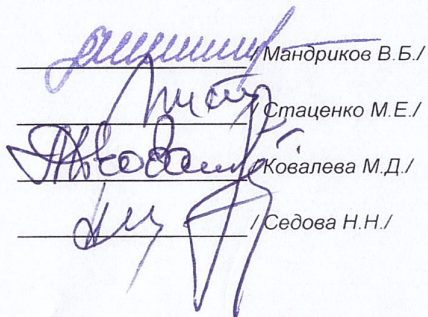 / Мандриков В.Б./
/ Стаценко М.Е./
/ Ковалева М.Д./
/ Седова Н.Н./